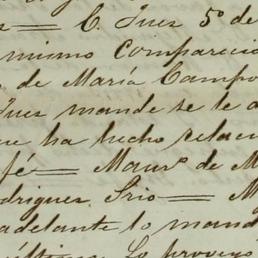 = C. Juez 5º de
mismo comparecio
de María Campo
Juez mande se le
que ha hecho relaci
fé= Maurº de M
odriguez Srio=
adelante lo mand
Lo proveyo